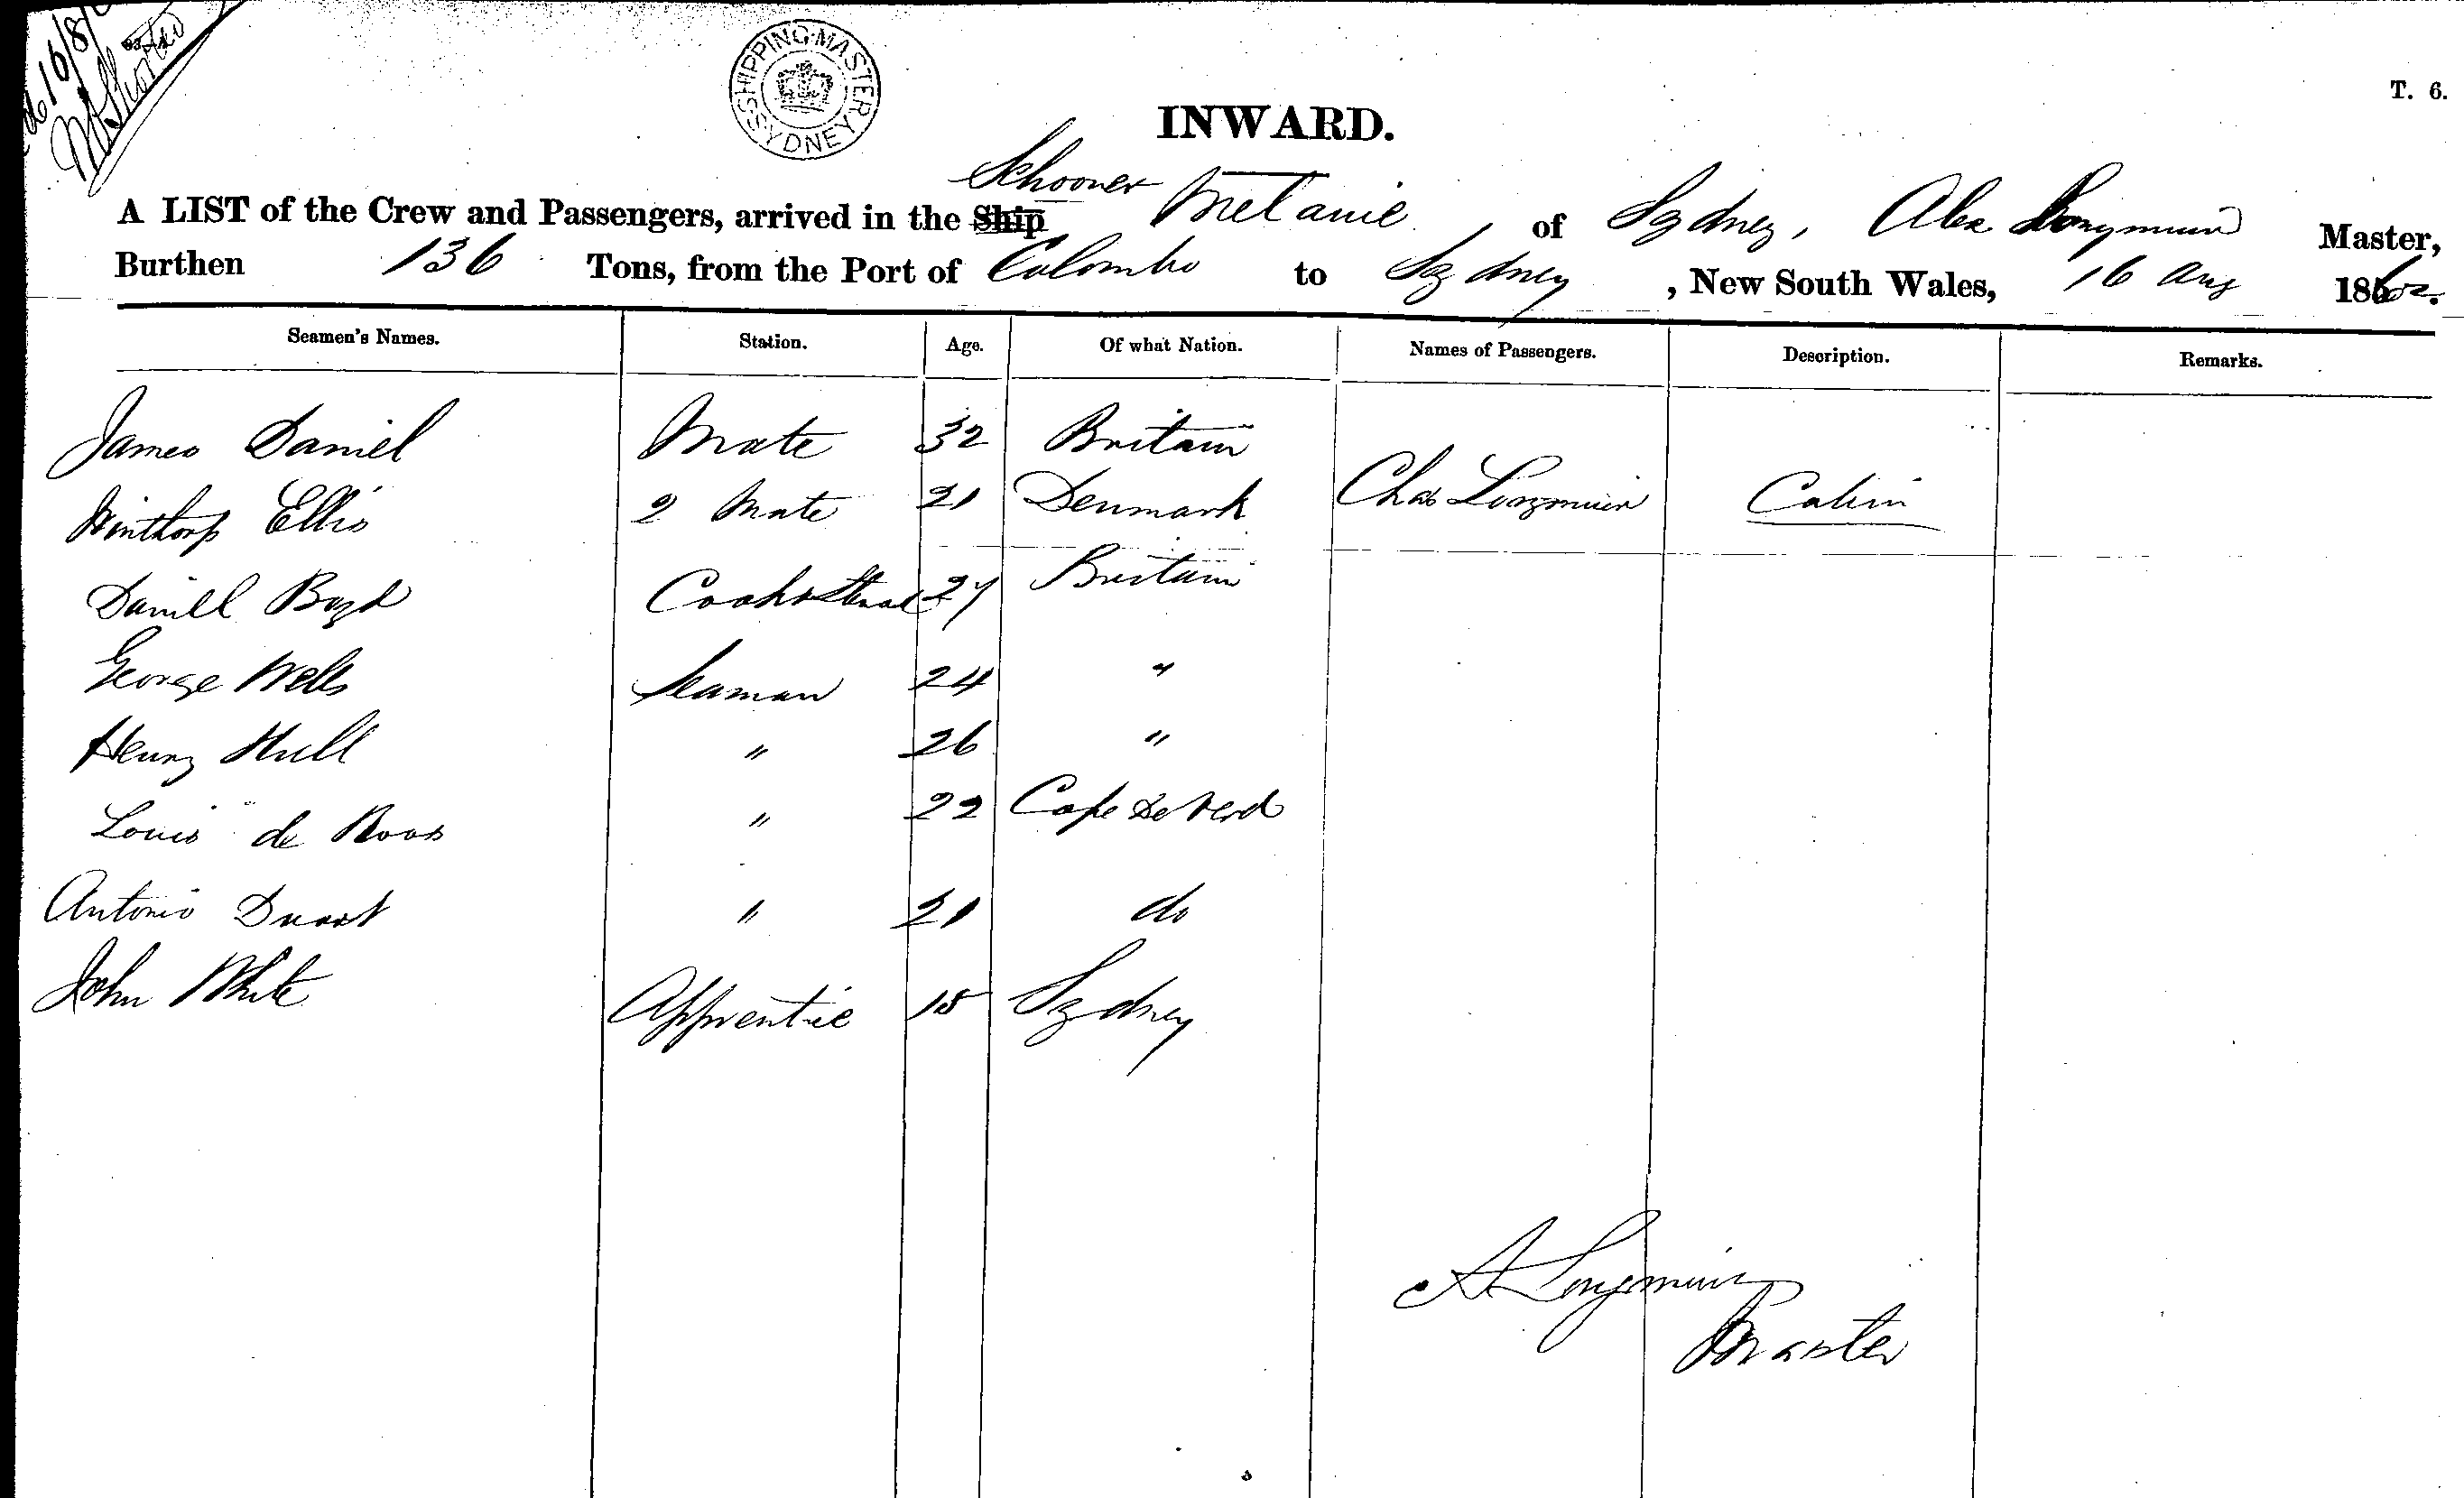 16/8/
SHIPPING MASTER SYDNEY
T. 6.
INWARD.
Schooner
A LIST of the Crew and Passengers, arrived in the Ship Melanie of Sydney, Alex Longmuir Master,
Burthen 136 Tons, from the Port of Colombo to Sydney, New South Wales, 16 Aug 1862.
Seamen's Names. Station. Age. Of what Nation. Names of Passengers. Description. Remarks.
James Daniel Mate 32 Britain
Winthorp Ellis 2 Mate 21 Denmark Chas Longmuir Cabin
Daniell Boyd Cook & Steward 27 Britain
George Wells Seaman 24 "
Henry Hull " 26 "
Louis de Roos " 22 Cape de Verd
Antonio Duart " 21 do
John White Apprentice 15 Sydney
A Longmuir
Master